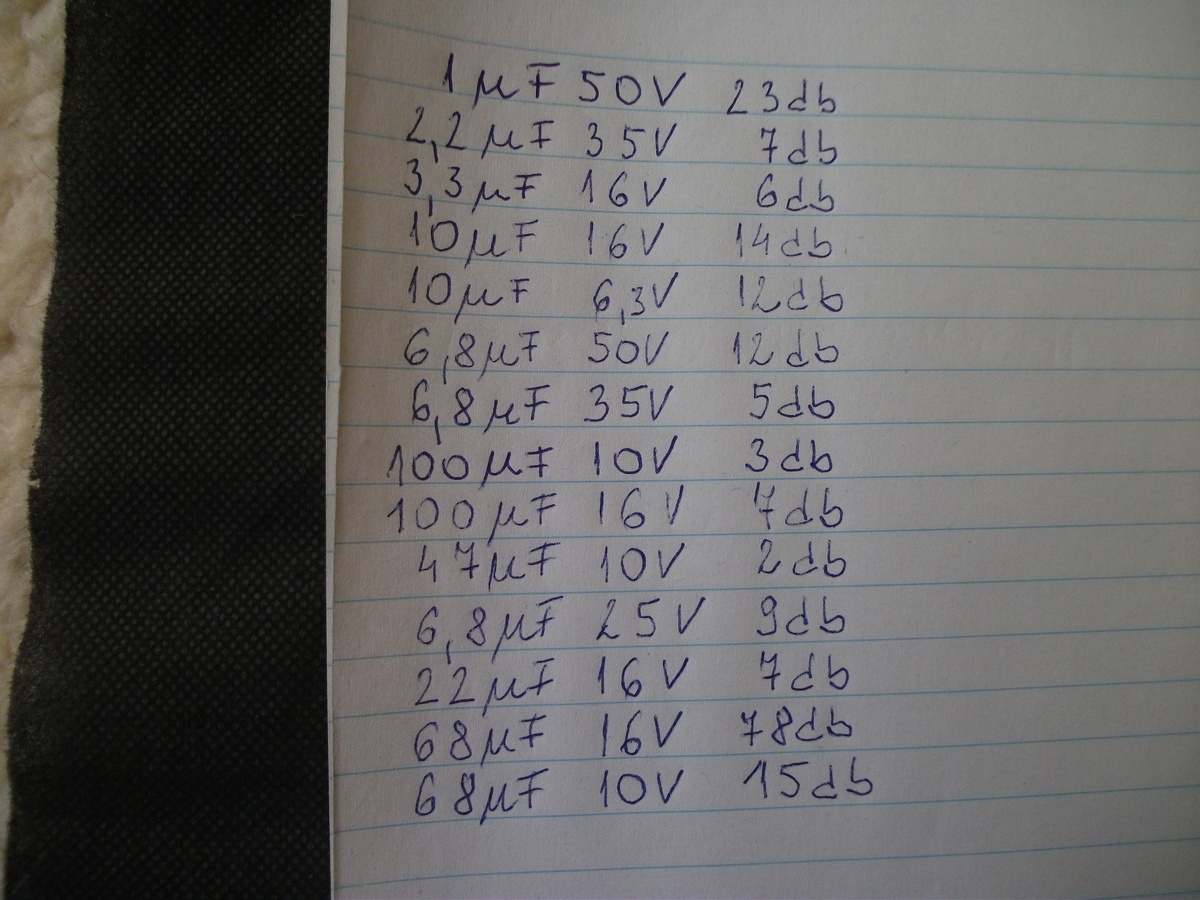 1 µF 50V 23db
2,2 µF 35V 7db
3,3µF 16V 6db
10µF 16V 14db
10µF 6,3V 12db
6,8µF 50V 12db
6,8µF 35V 5db
100µF 10V 3db
100µF 16V 7db
47µF 10V 2db
6,8µF 25V 9db
22µF 16V 7db
68µF 16V 78db
68µF 10V 15db